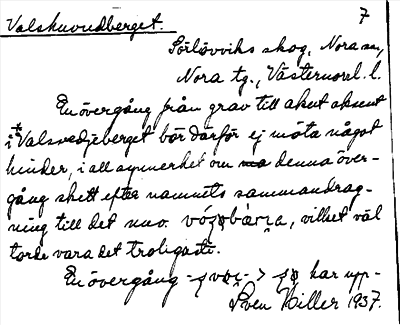 Valskuvudberget. 7
Sörlövviks skog, Nora sn,
Nora tg., Västernorrl. l.
En övergång från grav till akut aksent
i *Valsvedjeberget bör därför ej möta något
hinder, i all synnerhet om denna över-
gång skett efter namnets sammandrag-
ning till det nuv. vilket väl
torde vara det troligaste.
En övergång har upp-
Sven Hiller 1937.